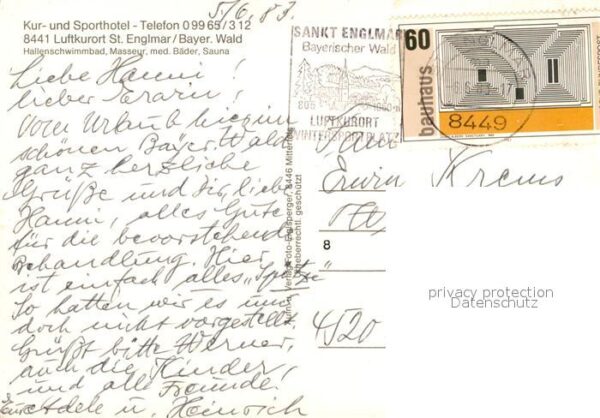 Kur- und Sporthotel - Telefon 09965/312
8441 Luftkurort St. Englmar/Bayer. Wald
Hallenschwimmbad, Masseur, med. Bäder, Sauna
5/6.83.
Liebe Hanni!
lieber Erwin!
Vom Urlaub hier im
schönen Bayer. Wald
ganz herzliche
Grüße und dir, liebe
Hanni, alles Gute
für die bevorstehende
Behandlung. Hier
ist einfach alles "Spitze"
So hatten wir es uns
doch nicht vorgestellt.
Grüßt bitte Werner,
auch die Kinder,
und alle Freunde!
Eure Adele u. Heinrich
SANKT ENGLMAR
Bayerischer Wald
LUFTKURORT
WINTERSPORTPLATZ
60
bauhaus
8449
Erwin Krems
8
4520
Urheberrechtl. geschützt
privacy protection
Datenschutz